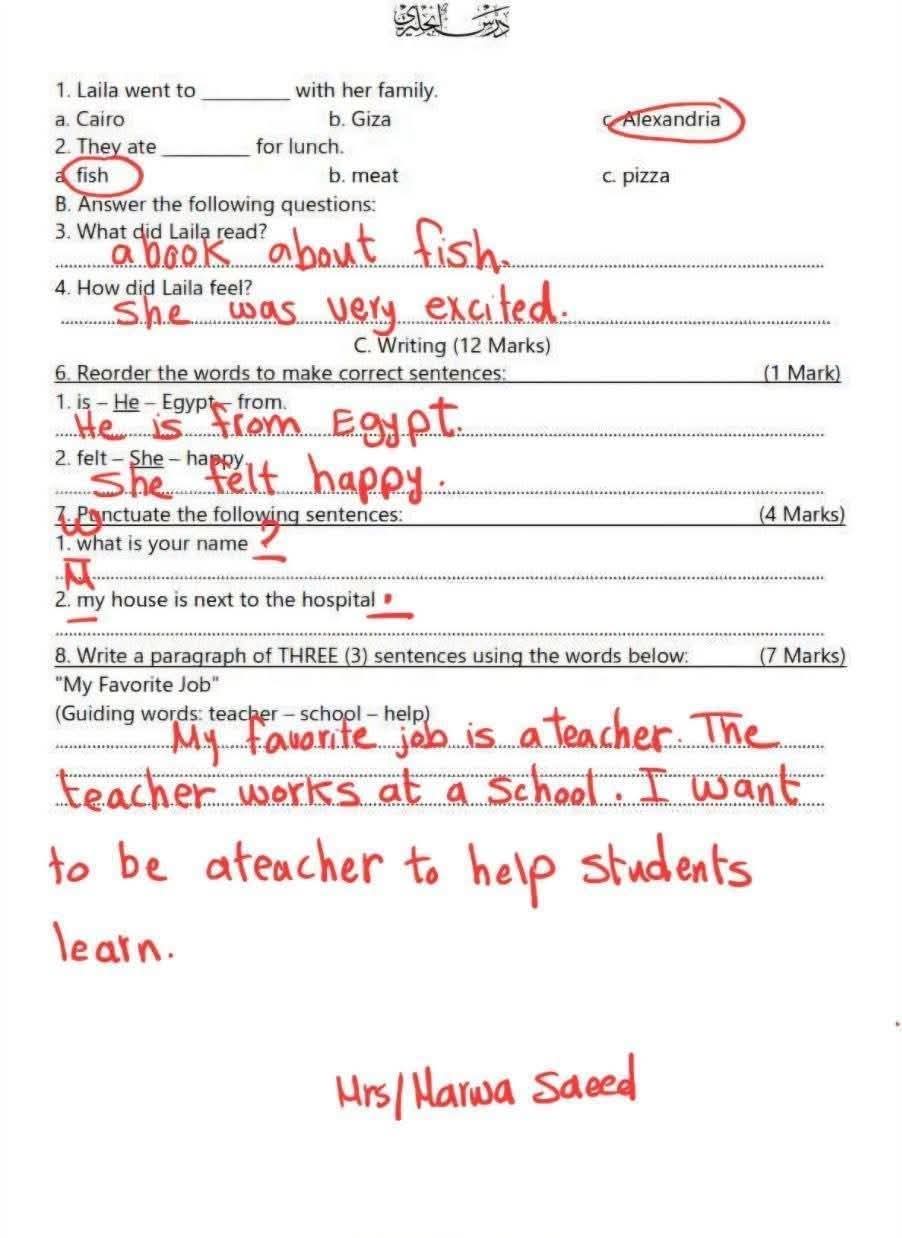 درس انجليزي
1. Laila went to ________ with her family.
a. Cairo b. Giza c. Alexandria
2. They ate ________ for lunch.
a. fish b. meat c. pizza
B. Answer the following questions:
3. What did Laila read?
a book about fish.
4. How did Laila feel?
She was very excited.
C. Writing (12 Marks)
6. Reorder the words to make correct sentences: (1 Mark)
1. is – He – Egypt – from.
He is from Egypt.
2. felt – She – happy.
She felt happy.
7. Punctuate the following sentences: (4 Marks)
W
1. what is your name ?
M
2. my house is next to the hospital .
8. Write a paragraph of THREE (3) sentences using the words below: (7 Marks)
"My Favorite Job"
(Guiding words: teacher – school – help)
My favorite job is a teacher. The
teacher works at a school. I want
to be ateacher to help students
learn.
Mrs/Marwa Saeed